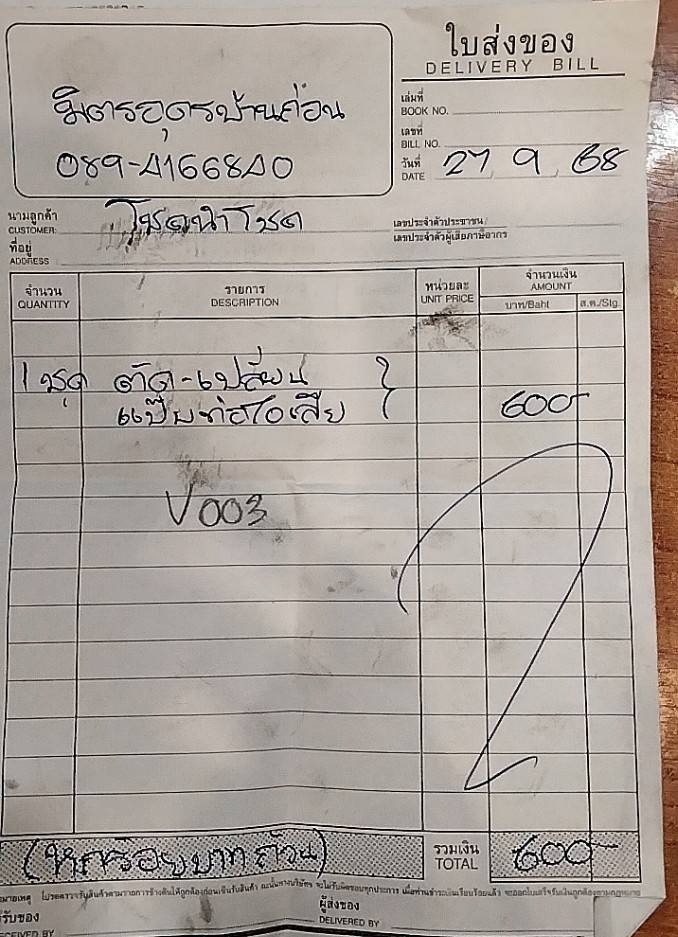 ใบส่งของ
DELIVERY BILL
มิตรอุดรบ้านก่อน
089-4166840
เล่มที่
BOOK NO.
เลขที่
BILL NO.
วันที่
DATE 27 9 68
นามลูกค้า
CUSTOMER: โชคนำโชค
เลขประจำตัวประชาชน
เลขประจำตัวผู้เสียภาษีอากร
ที่อยู่
ADDRESS
จำนวน รายการ หน่วยละ จำนวนเงิน
QUANTITY DESCRIPTION UNIT PRICE AMOUNT
บาท/Baht ส.ต./Stg.
1 ชุด ตัด-เปลี่ยน
แป๊บท่อไอเสีย 600-
V003
(หกร้อยบาทถ้วน) รวมเงิน 600-
TOTAL
ผู้ส่งของ
DELIVERED BY
รับของ